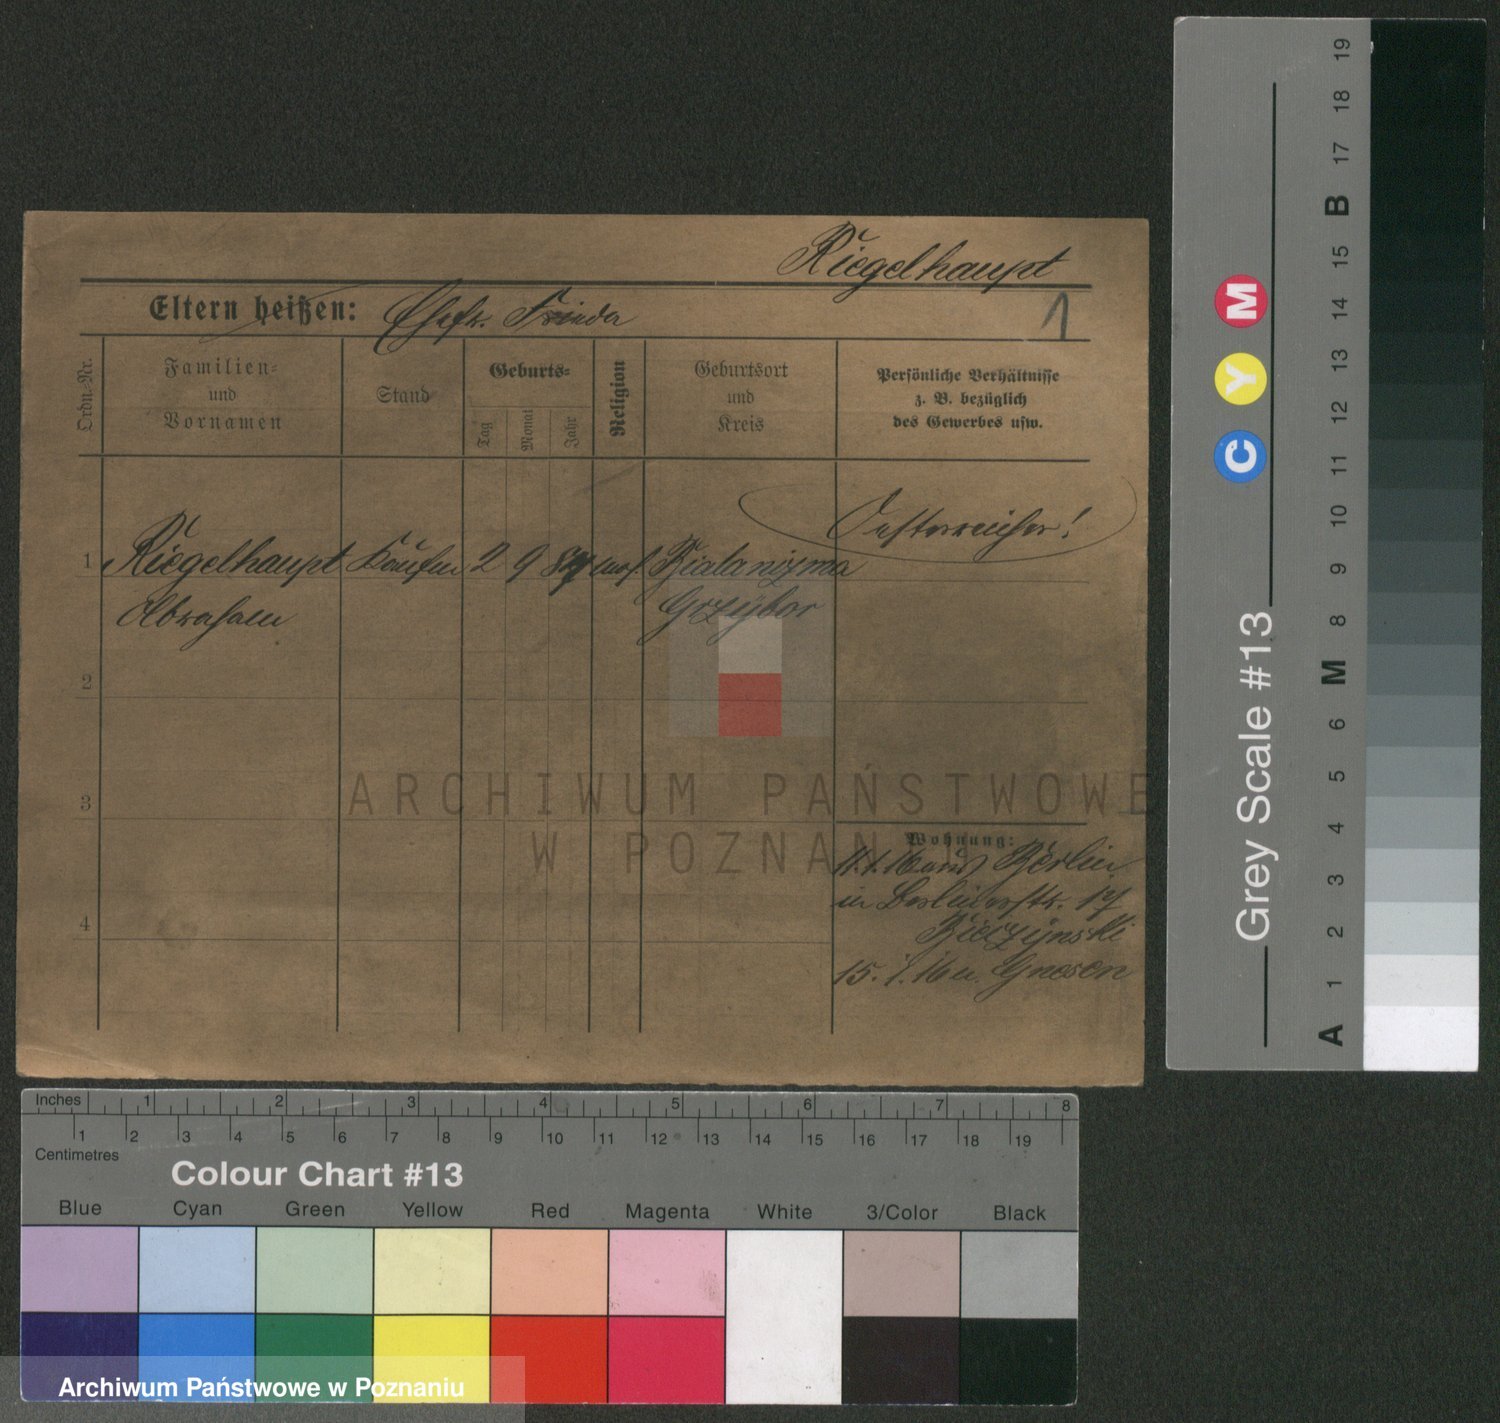 Riegelhaupt
Eltern heißen: Ehefr. Frieda
1
Ordn.-Nr.
Familien-
und
Vornamen
Stand
Geburts-
Tag
Monat
Jahr
Religion
Geburtsort
und
Kreis
Persönliche Verhältnisse
z. B. bezüglich
des Gewerbes usw.
Oesterreicher!
1 Riegelhaupt Kaufm 2 9 mos
Abraham Grzybor
2
3
4
Wohnung:
11.1.16 aus Berlin
in Berlinerstr. 17
Bieczynski
15.1.16 n. Gnesen
ARCHIWUM PAŃSTWOWE
W POZNANIU
Inches 1 2 3 4 5 6 7 8
1 2 3 4 5 6 7 8 9 10 11 12 13 14 15 16 17 18 19
Centimetres
Colour Chart #13
Blue Cyan Green Yellow Red Magenta White 3/Color Black
Archiwum Państwowe w Poznaniu
Grey Scale #13
C Y M
A 1 2 3 4 5 6 M 8 9 10 11 12 13 14 15 B 17 18 19